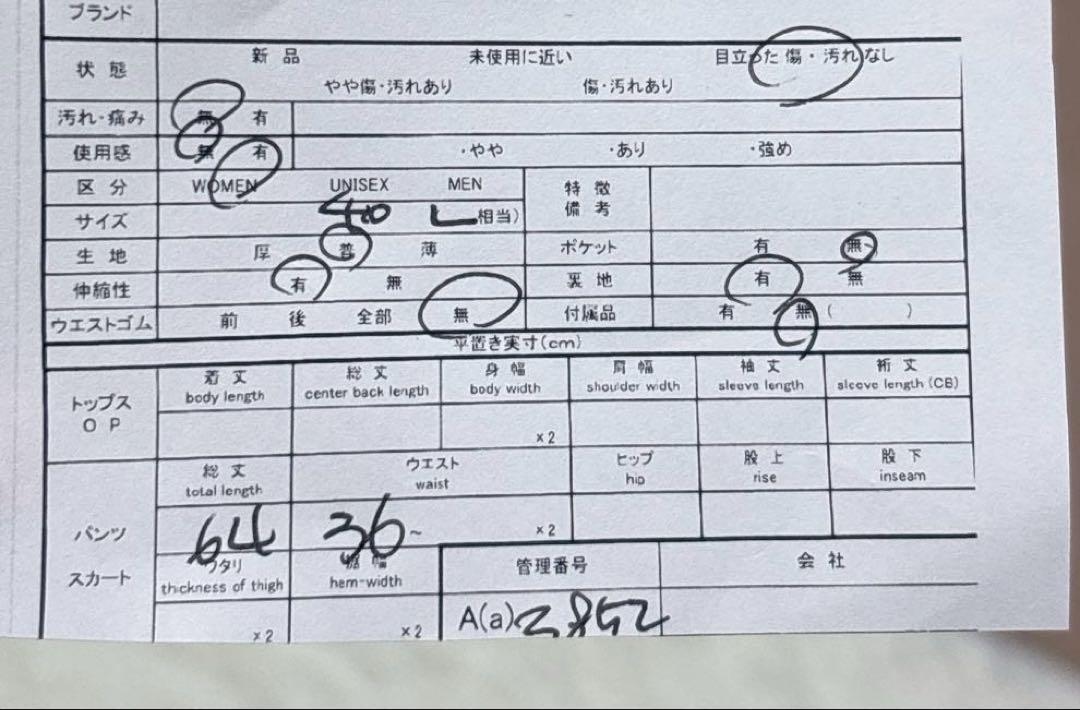 ブランド
状態 新品 未使用に近い 目立った傷・汚れなし
やや傷・汚れあり 傷・汚れあり
汚れ・痛み 無 有
使用感 無 有 ・やや ・あり ・強め
区分 WOMEN UNISEX MEN 特徴
備考
サイズ 40 L相当)
生地 厚 普 薄 ポケット 有 無
伸縮性 有 無 裏地 有 無
ウエストゴム 前 後 全部 無 付属品 有 無 ( )
平置き実寸(cm)
トップス
OP
着丈 総丈 身幅 肩幅 袖丈 裄丈
body length center back length body width shoulder width sleeve length sleeve length (CB)
×2
パンツ
スカート
総丈 ウエスト ヒップ 股上 股下
total length waist hip rise inseam
64 36~ ×2
ワタリ 裾幅 管理番号 会社
thickness of thigh hem-width
×2 ×2 A(a) 3852